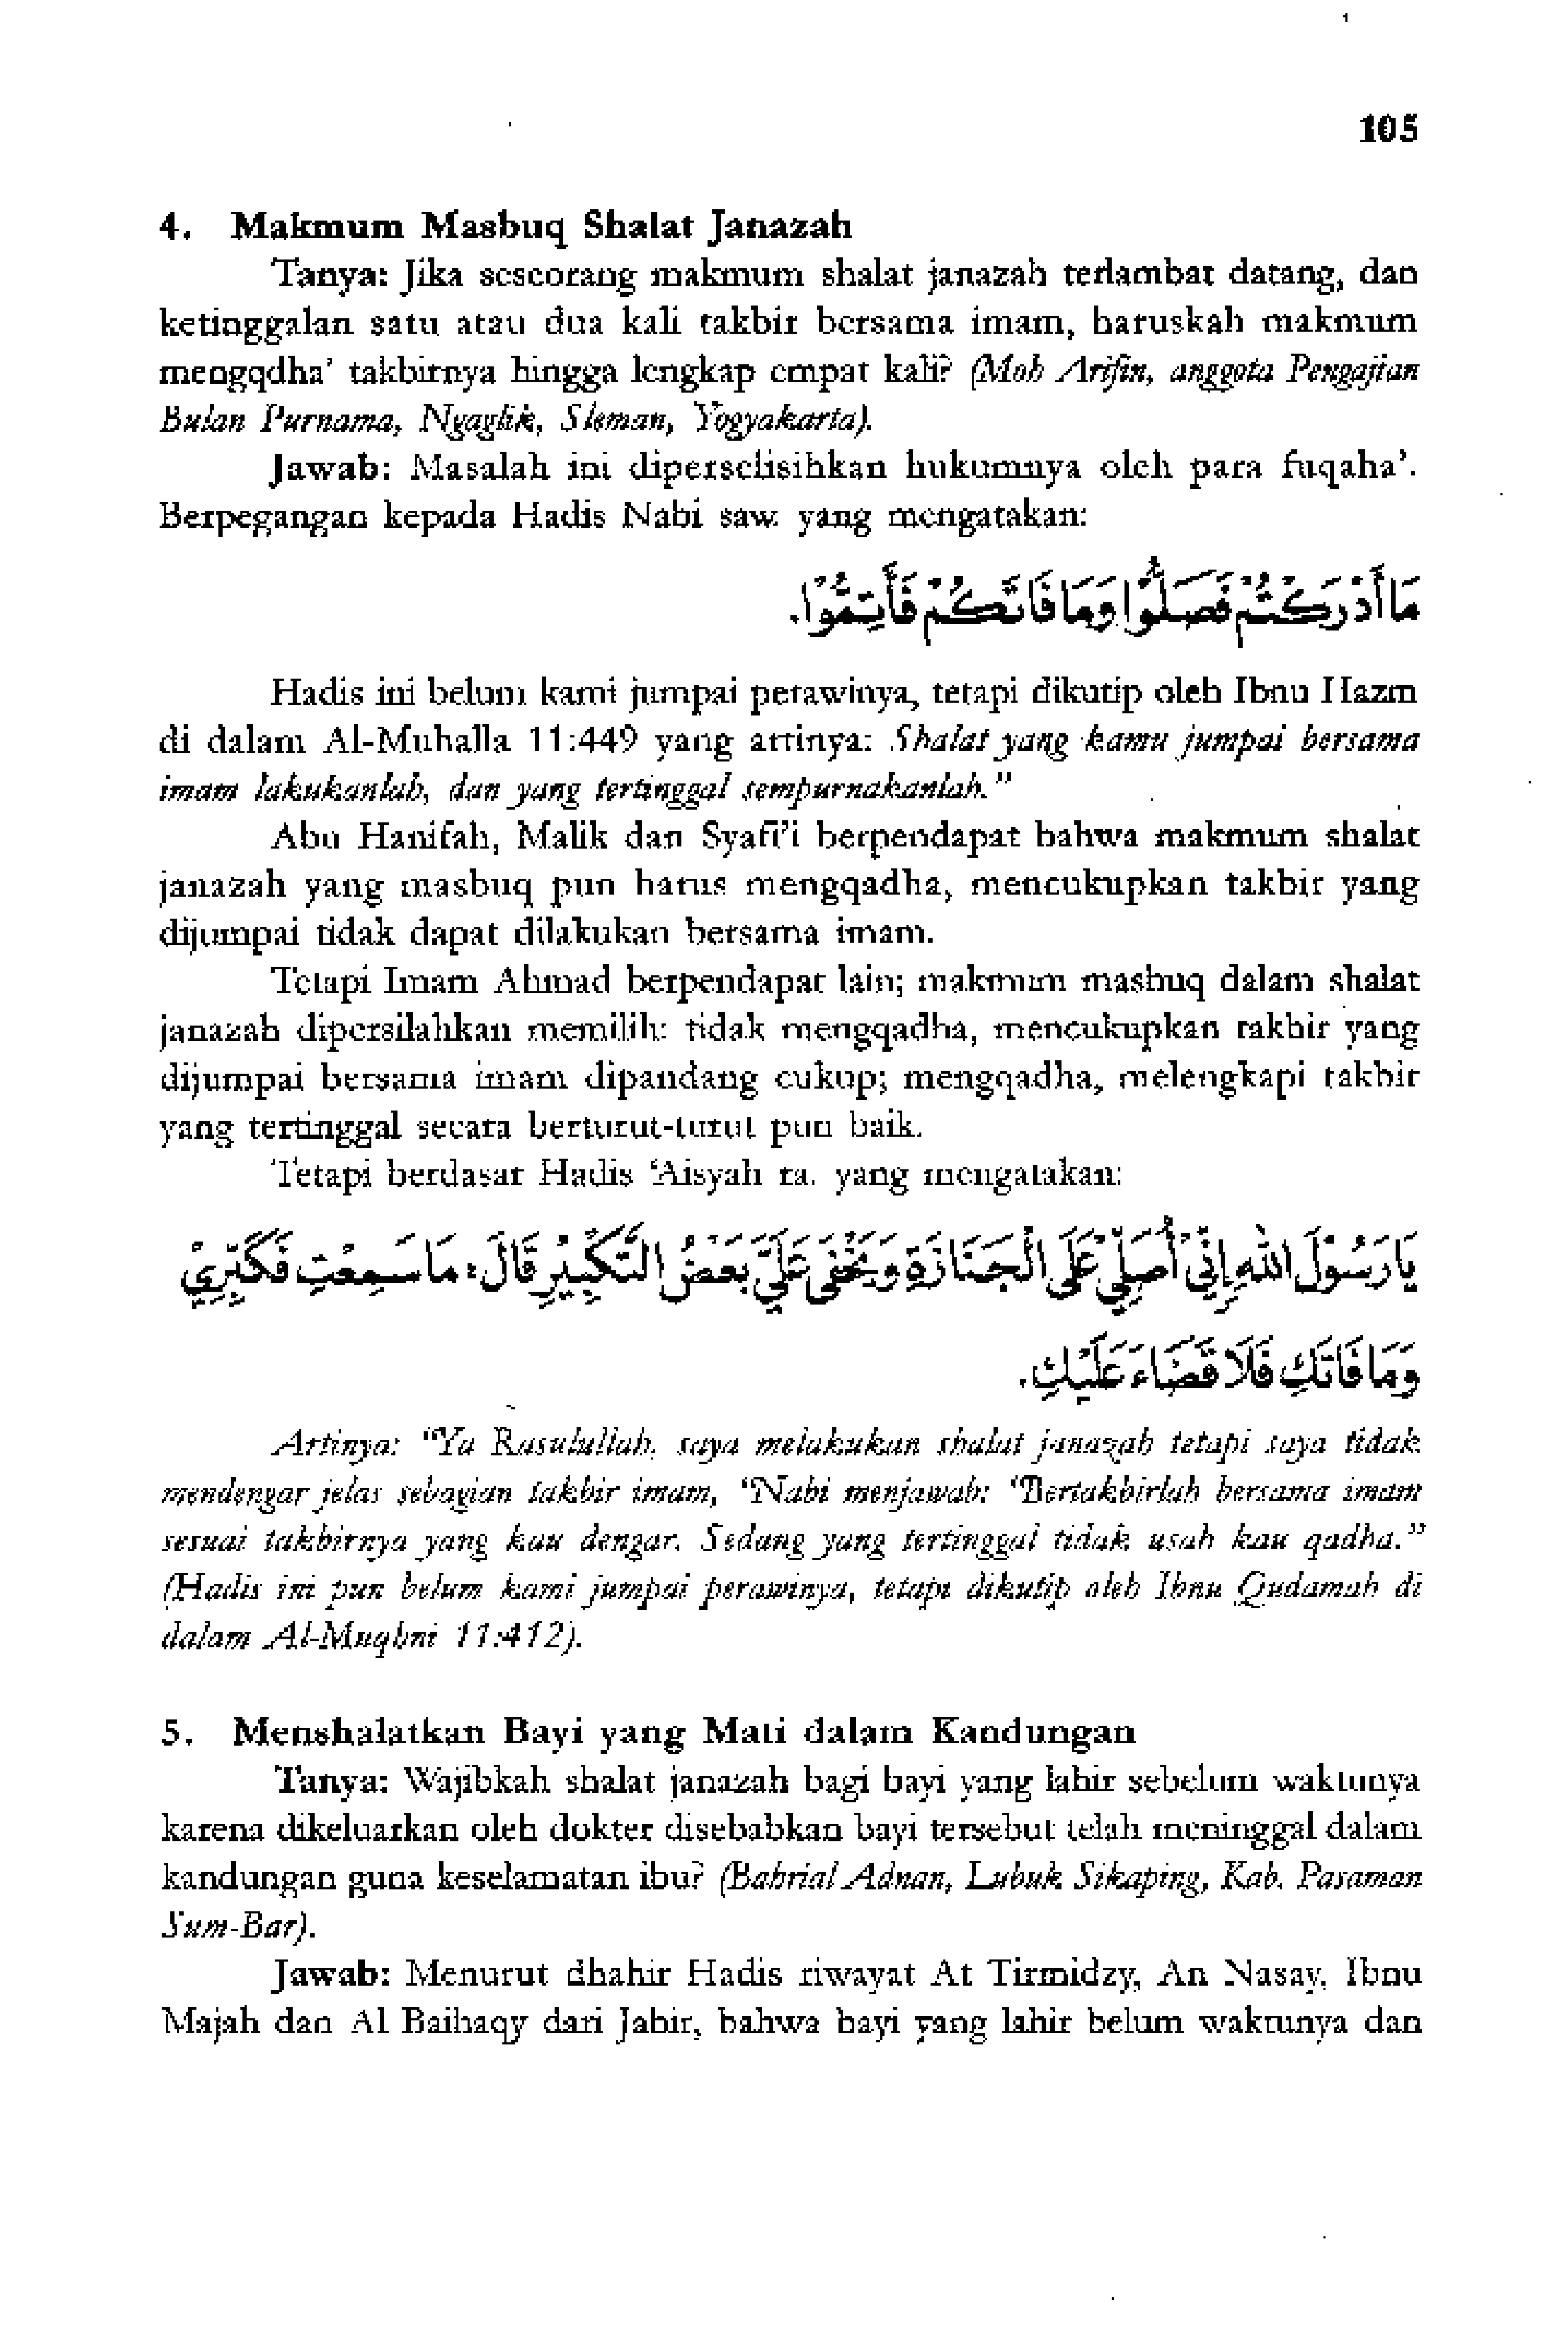 105
4. Makmum Masbuq Shalat Janazah
Tanya: Jika seseorang makmum shalat janazah terlambat datang, dan
ketinggalan satu atau dua kali takbir bersama imam, haruskah makmum
mengqdha’ takbirnya hingga lengkap empat kali? (Moh Arifin, anggota Pengajian
Bulan Purnama, Ngaglik, Sleman, Yogyakarta).
Jawab: Masalah ini diperselisihkan hukumnya oleh para fuqaha’.
Berpegangan kepada Hadis Nabi saw. yang mengatakan:
مَا أَدْرَكْتُمْ فَصَلُّوْا وَمَا فَاتَكُمْ فَأَتِمُّوْا.
Hadis ini belum kami jumpai perawinya, tetapi dikutip oleh Ibnu Hazm
di dalam Al-Muhalla 11:449 yang artinya: Shalat yang kamu jumpai bersama
imam lakukanlah, dan yang tertinggal sempurnakanlah.”
Abu Hanifah, Malik dan Syafi’i berpendapat bahwa makmum shalat
janazah yang masbuq pun harus mengqadha, mencukupkan takbir yang
dijumpai tidak dapat dilakukan bersama imam.
Tetapi Imam Ahmad berpendapat lain; makmum masbuq dalam shalat
janazah dipersilahkan memilih: tidak mengqadha, mencukupkan takbir yang
dijumpai bersama imam dipandang cukup; mengqadha, melengkapi takbir
yang tertinggal secara berturut-turut pun baik.
Tetapi berdasar Hadis ‘Aisyah ra. yang mengatakan:
يَا رَسُوْلَ اللهِ إِنِّيْ أُصَلِّيْ عَلَى الْجَنَازَةِ وَيَخْفَى عَلَيَّ بَعْضُ التَّكْبِيْرِ قَالَ: مَا سَمِعْتِ فَكَبِّرِيْ
وَمَا فَاتَكِ فَلَا قَضَاءَ عَلَيْكِ.
Artinya: “Ya Rasulullah, saya melakukan shalat janazah tetapi saya tidak
mendengar jelas sebagian takbir imam, ‘Nabi menjawab: ‘Bertakbirlah bersama imam
sesuai takbirnya yang kau dengar. Sedang yang tertinggal tidak usah kau qadha.”
(Hadis ini pun belum kami jumpai perawinya, tetapi dikutip oleh Ibnu Qudamah di
dalam Al-Muqhni 11:412).
5. Menshalatkan Bayi yang Mati dalam Kandungan
Tanya: Wajibkah shalat janazah bagi bayi yang lahir sebelum waktunya
karena dikeluarkan oleh dokter disebabkan bayi tersebut telah meninggal dalam
kandungan guna keselamatan ibu? (Bahrial Adnan, Lubuk Sikaping, Kab. Pasaman
Sum-Bar).
Jawab: Menurut dhahir Hadis riwayat At Tirmidzy, An Nasay, Ibnu
Majah dan Al Baihaqy dari Jabir, bahwa bayi yang lahir belum waktunya dan